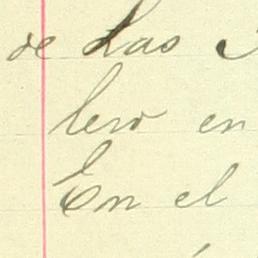 de Las
lero en
En el